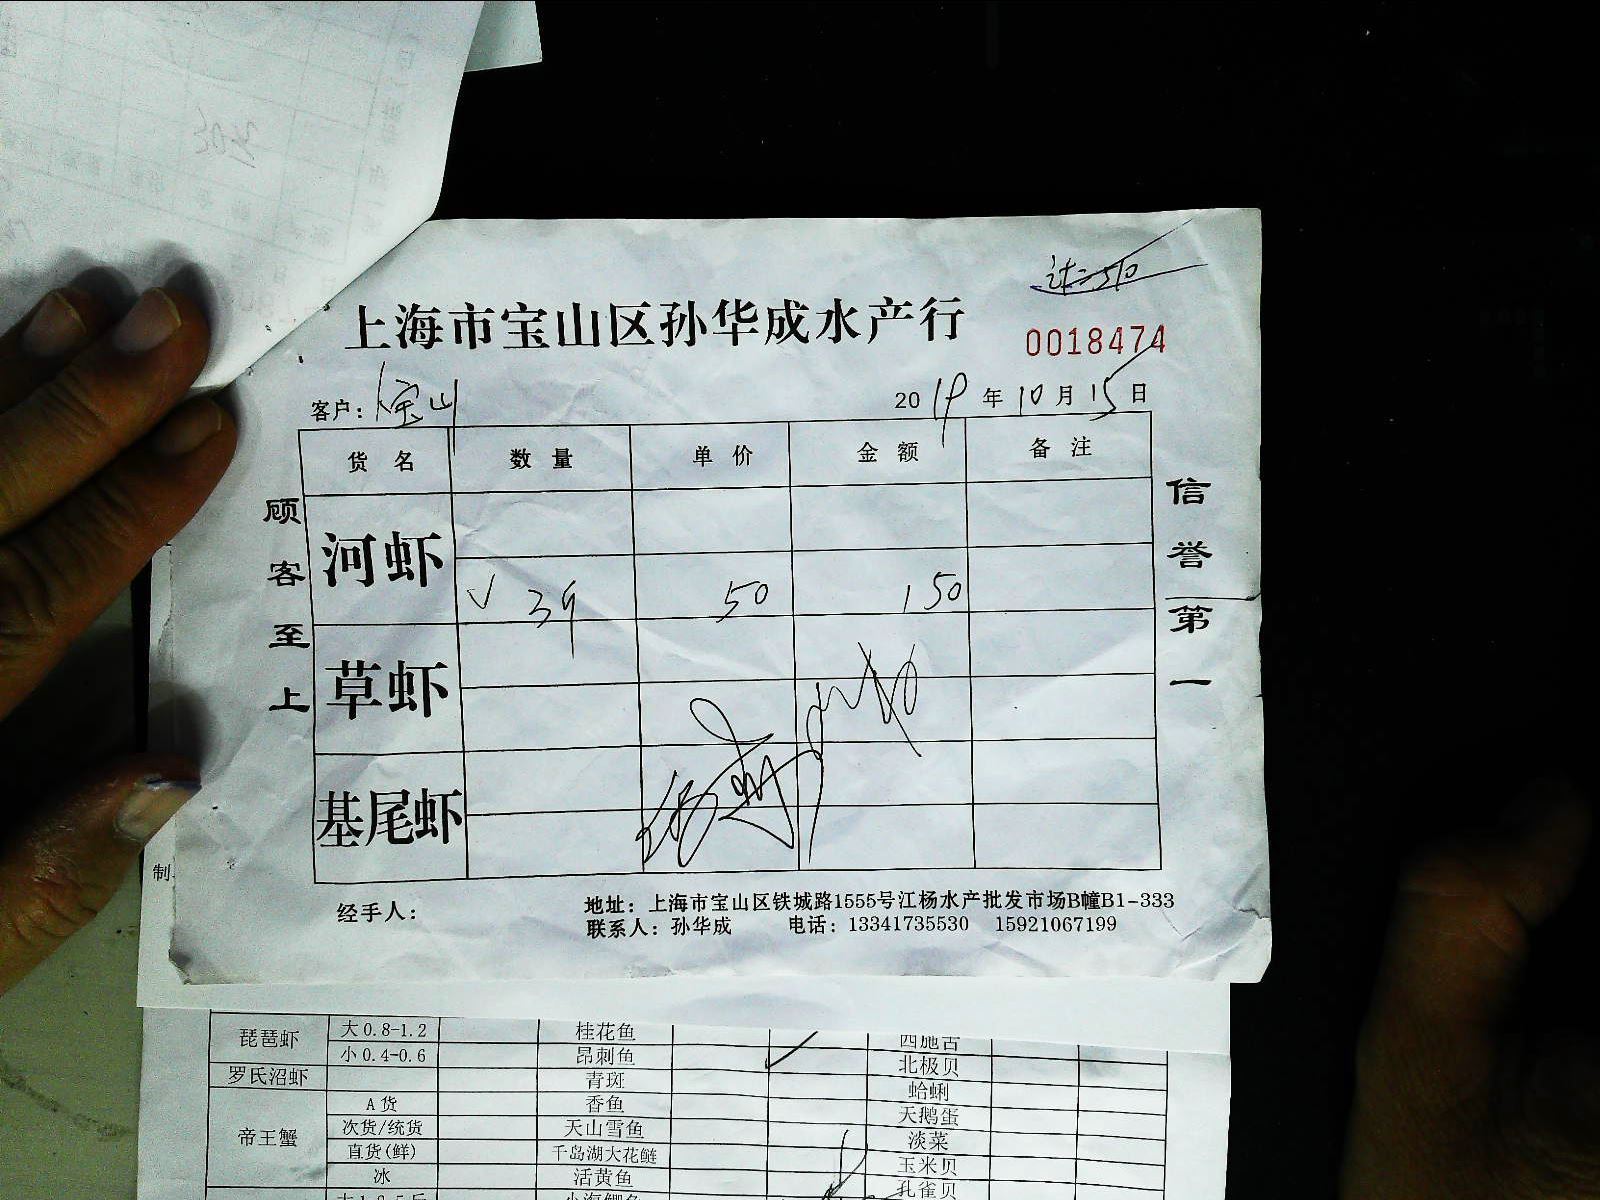 上海市宝山区孙华成水产行
0018474
客户：宝山
2019年10月15日
货名 数量 单价 金额 备注
顾客至上
信誉第一
河虾
√ 3斤 50 150
草虾
基尾虾
经手人：
地址：上海市宝山区铁城路1555号江杨水产批发市场B幢B1-333
联系人：孙华成 电话：13341735530 15921067199
制
琵琶虾 大0.8-1.2 桂花鱼 西施舌
小0.4-0.6 昂刺鱼 北极贝
罗氏沼虾 青斑 蛤蜊
帝王蟹 A货 香鱼 天鹅蛋
次货/统货 天山雪鱼 淡菜
直货(鲜) 千岛湖大花鲢 玉米贝
冰 活黄鱼 孔雀贝